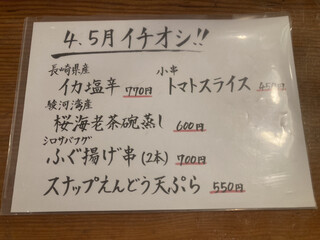 4、5月イチオシ!!
長崎県産
イカ塩辛 770円
小串
トマトスライス 450円
駿河湾産
桜海老茶碗蒸し 600円
シロサバフグ
ふぐ揚げ串(2本) 700円
スナップえんどう天ぷら 550円